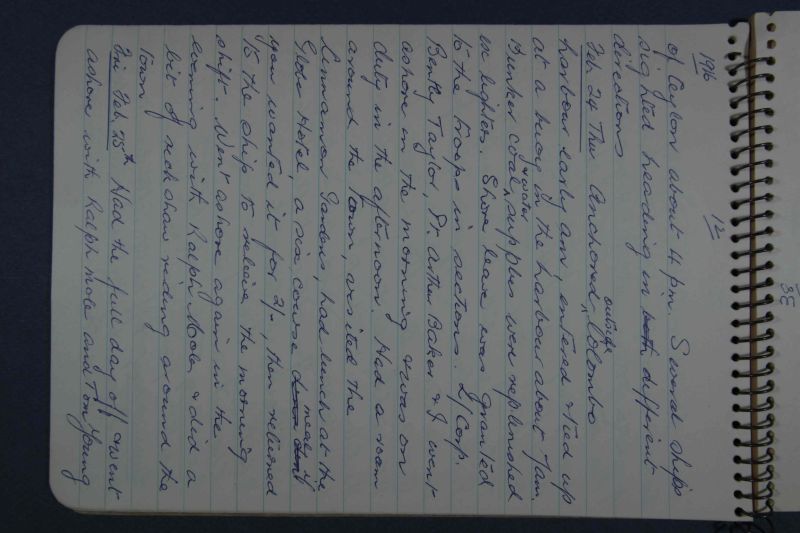 1916
12
of Ceylon about 4 pm. Several ships
sighted heading in both different
directions
Feb. 24 Thu Anchored outside Colombo
harbour early am, entered & tied up
at a buoy in the harbour about 7am.
Bunker coal & water supplies were replenished
ex lighters. Shore leave was granted
to the troops in sections. L/Corp.
Bently Taylor, Pr. Arthur Baker & I went
ashore in the morning & was on
duty in the afternoon. Had a roam
around the town, visited the
Cinnamon Gardens, had lunch at the
Globe Hotel, a six course meal if
you wanted it for 2/-, then returned
to the ship to relieve the morning
shift. Went ashore again in the
evening with Ralph Mole, & did a
bit of rickshaw riding around the
town.
Fri. Feb 25th Had the full day off & went
ashore with Ralph Mole and Tom Young
38